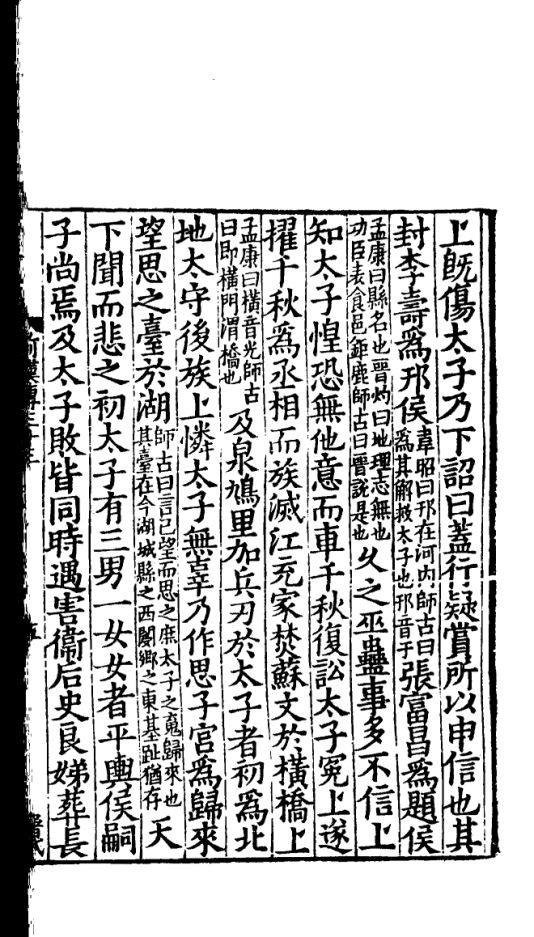 上旣傷太子乃下詔曰蓋行疑賞所以申信也其
封李壽爲邘侯韋昭曰邘在河內師古曰爲其解救太子也邘音于張富昌爲題侯
孟康曰縣名也晉灼曰地理志無也功臣表食邑鉅鹿師古曰晉說是也久之巫蠱事多不信上
知太子惶恐無他意而車千秋復訟太子冤上遂
擢千秋爲丞相而族滅江充家焚蘇文於橫橋上
孟康曰橫音光師古曰即橫門渭橋也及泉鳩里加兵刃於太子者初爲北
地太守後族上憐太子無辜乃作思子宮爲歸來
望思之臺於湖師古曰言己望而思之庶太子之䰟歸來也其臺在今湖城縣之西閿鄉之東基趾猶存天
下聞而悲之初太子有三男一女女者平輿侯嗣
子尚焉及太子敗皆同時遇害衞后史良娣葬長